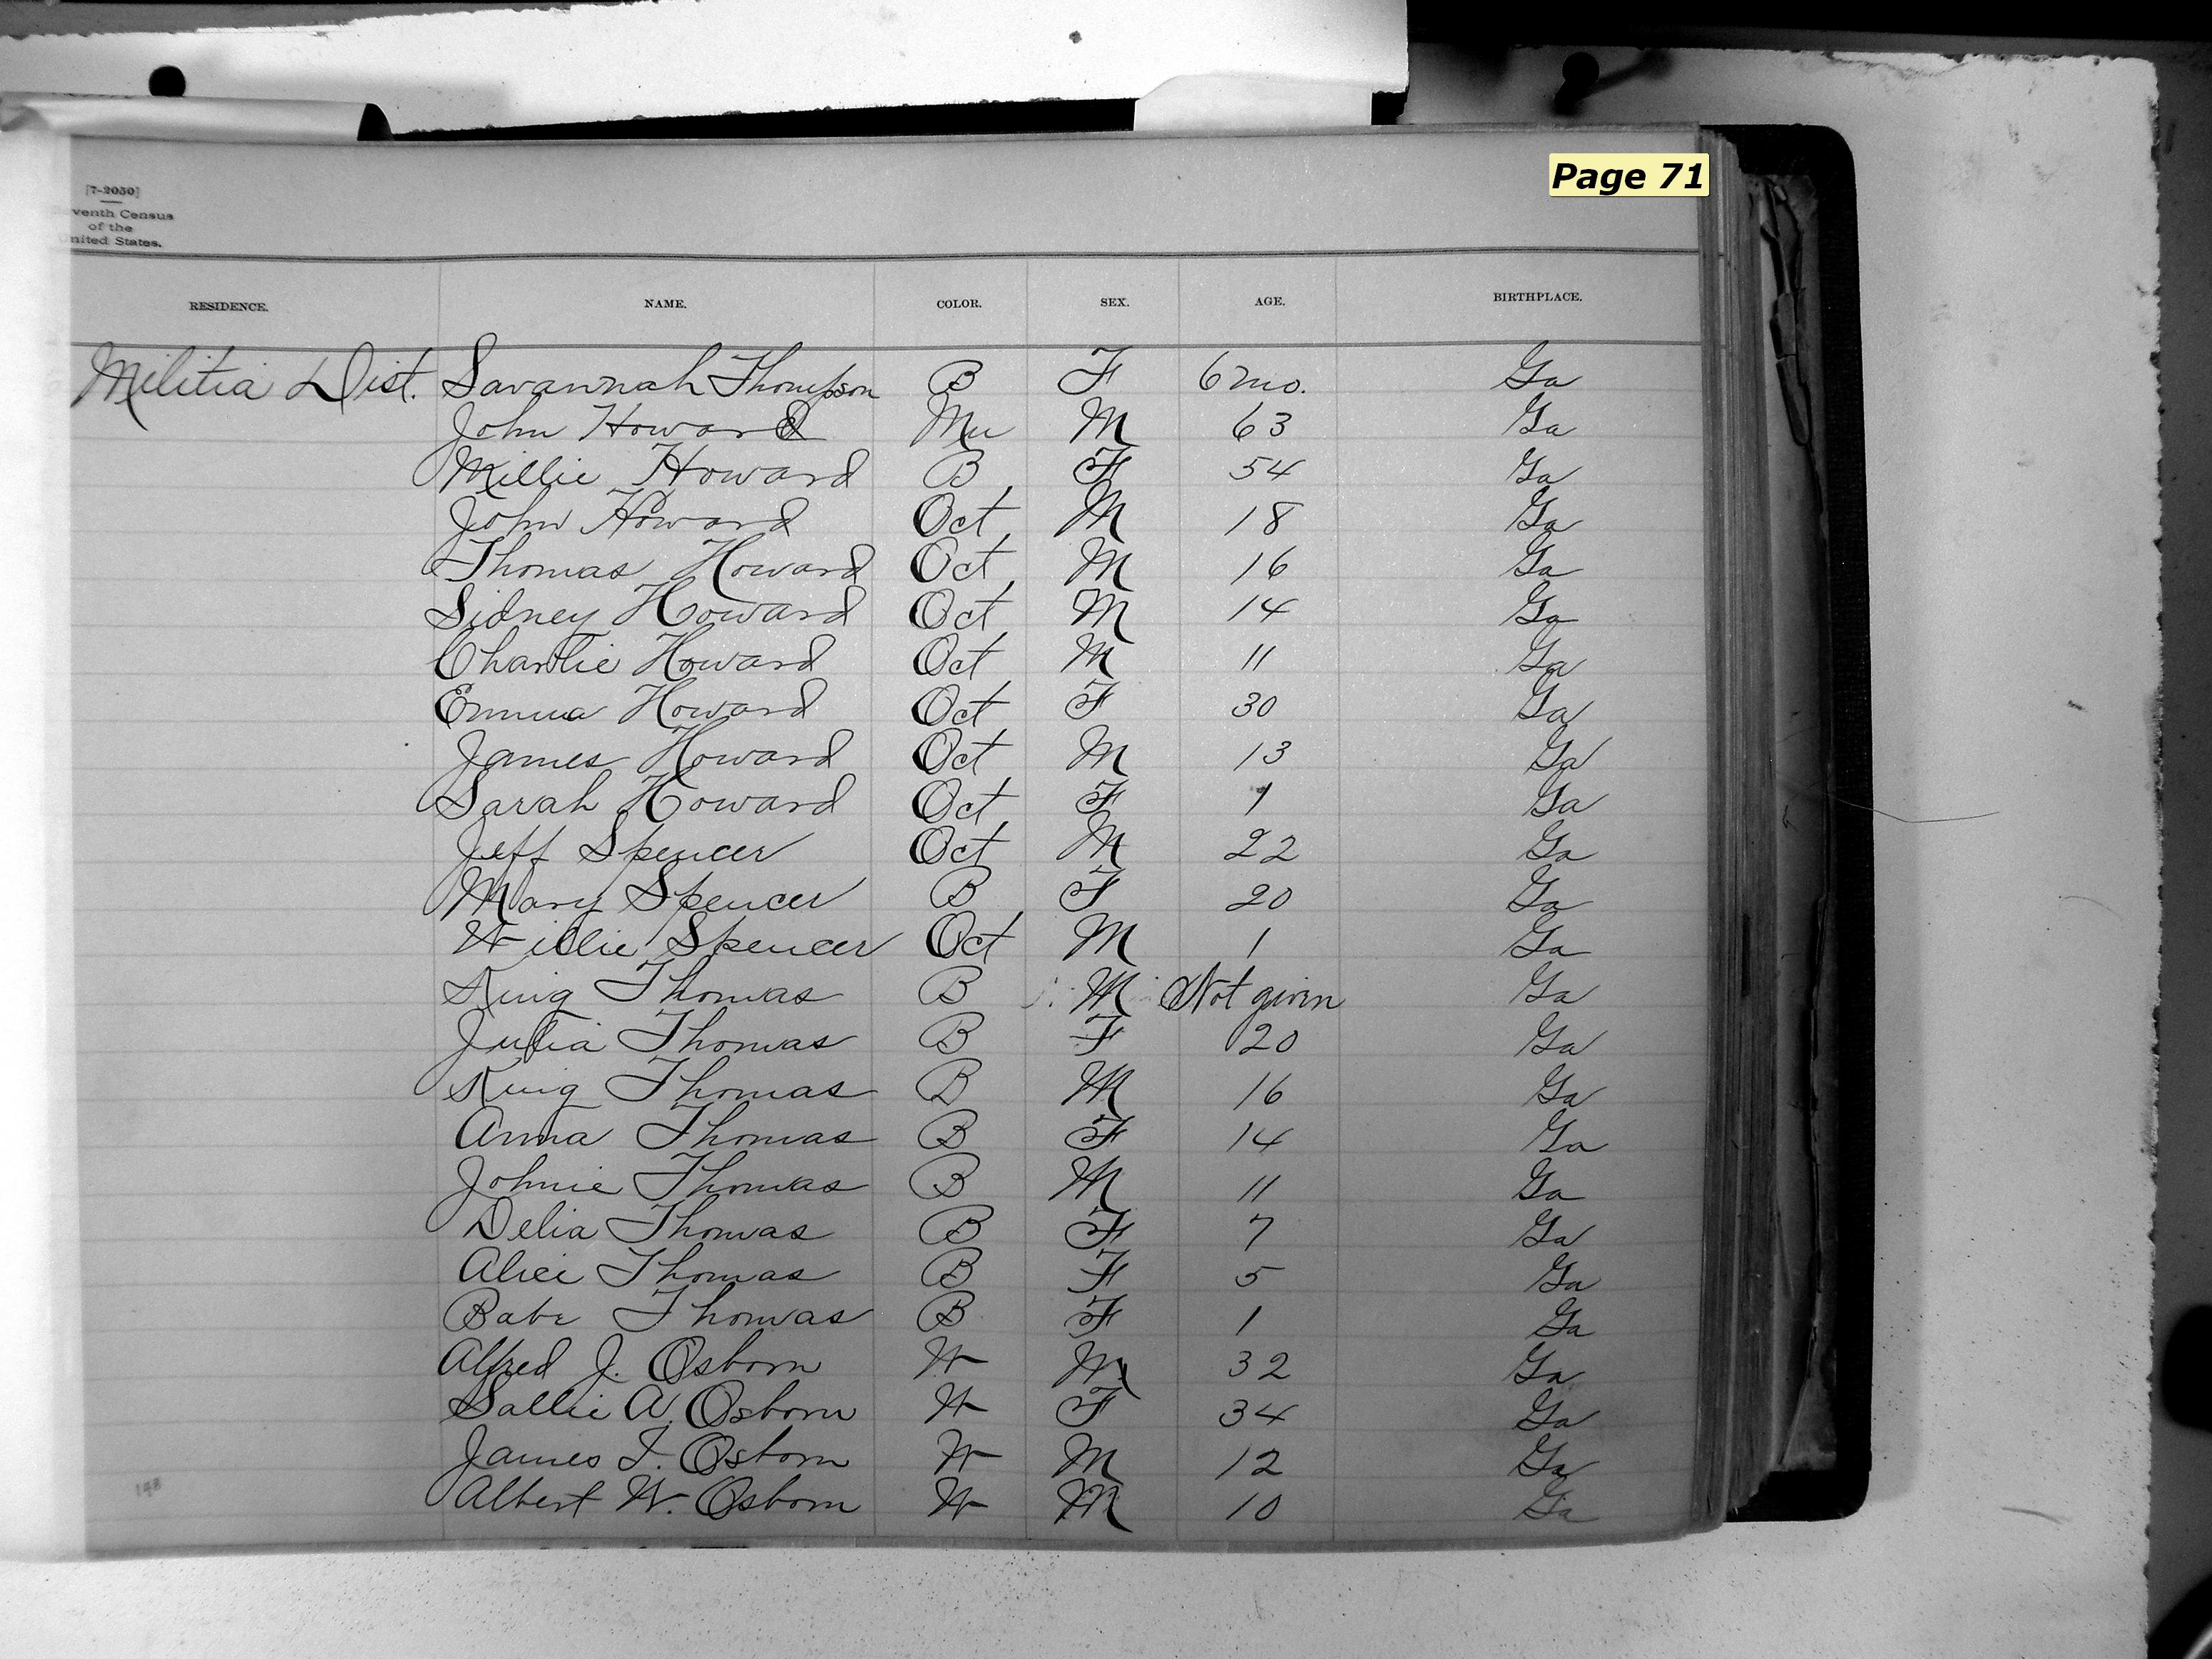 Page 71
[7-2050]
venth Census
of the
nited States.
RESIDENCE. NAME. COLOR. SEX. AGE. BIRTHPLACE.
Militia Dist. Savannah Thompson B F 6 mo. Ga
John Howard Mu M 63 Ga
Millie Howard B F 54 Ga
John Howard Oct M 18 Ga
Thomas Howard Oct M 16 Ga
Sidney Howard Oct M 14 Ga
Charlie Howard Oct M 11 Ga
Emma Howard Oct F 30 Ga
James Howard Oct M 13 Ga
Sarah Howard Oct F 1 Ga
Jeff Spencer Oct M 22 Ga
Mary Spencer B F 20 Ga
Willie Spencer Oct M 1 Ga
King Thomas B M Not given Ga
Julia Thomas B F 20 Ga
King Thomas B M 16 Ga
Anna Thomas B F 14 Ga
Johnie Thomas B M 11 Ga
Delia Thomas B F 7 Ga
Alice Thomas B F 5 Ga
Babe Thomas B F 1 Ga
Alfred J. Osborn W M 32 Ga
Sallie A. Osborn W F 34 Ga
James I. Osborn W M 12 Ga
Albert W. Osborn W M 10 Ga